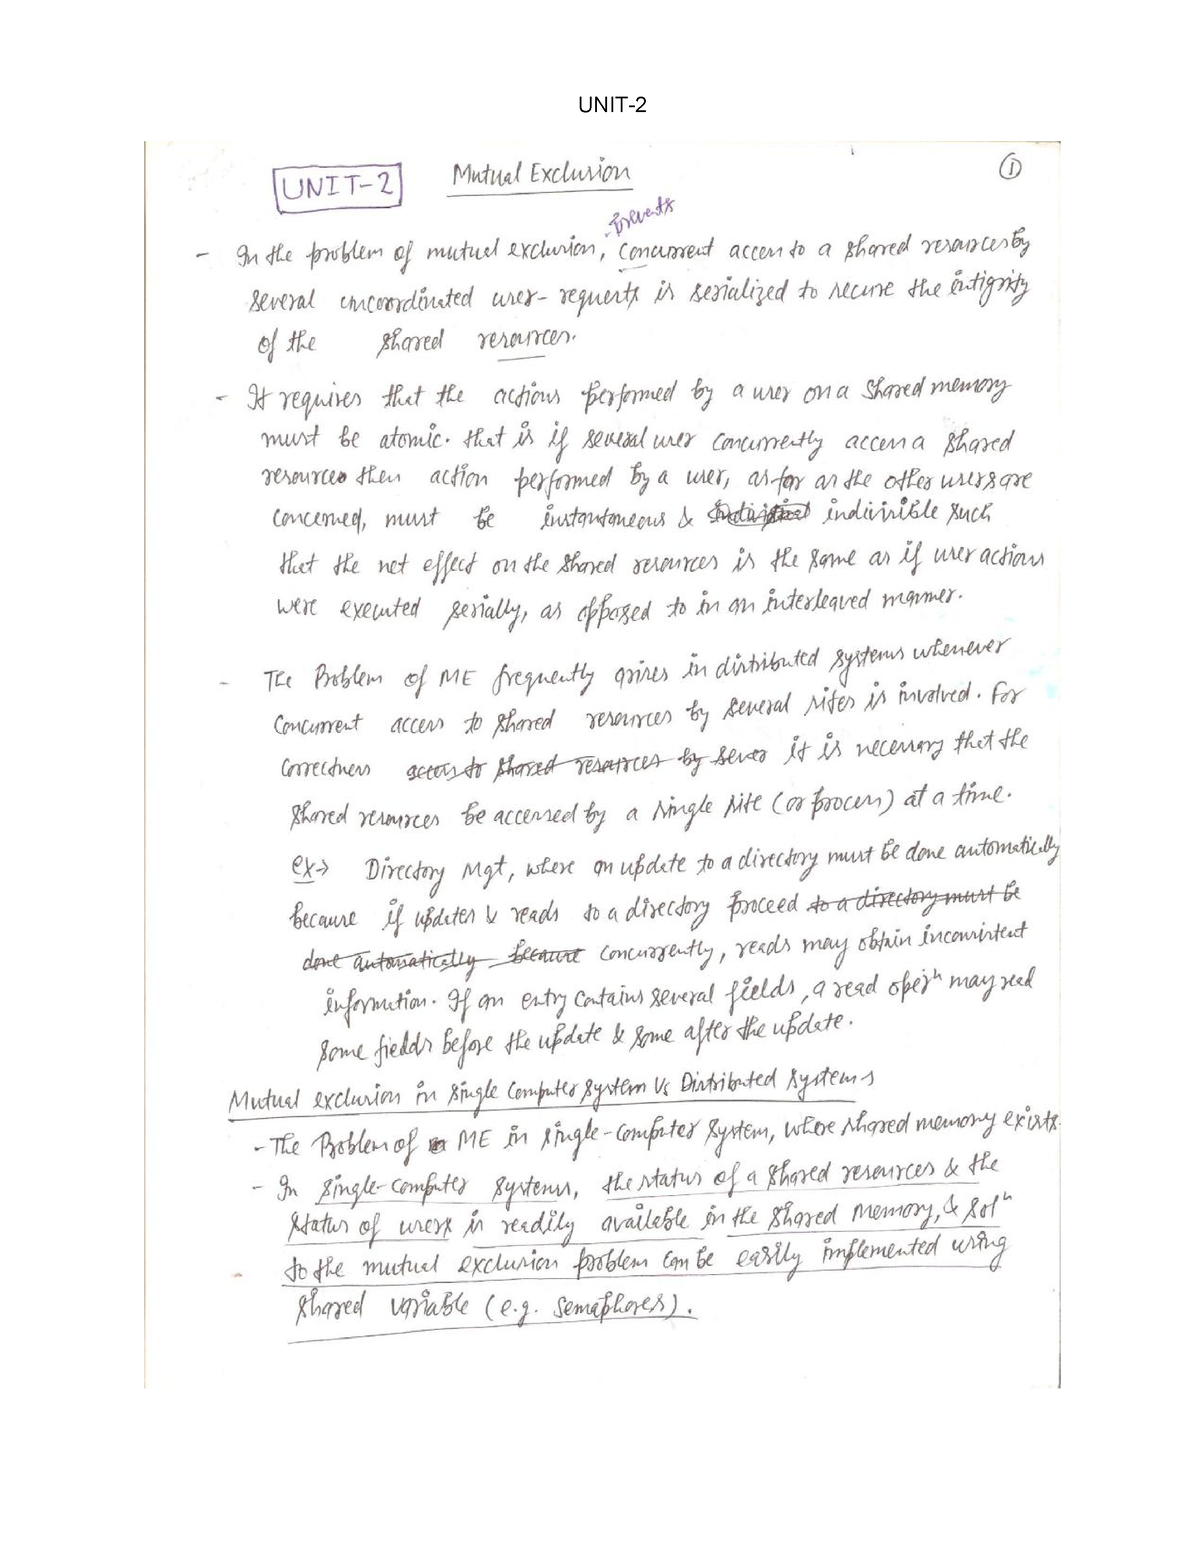 UNIT-2
UNIT-2 Mutual Exclusion 1
prevents
- In the problem of mutual exclusion, concurrent access to a shared resources by
several uncoordinated user-requests is serialized to secure the intigrity
of the shared resources.
- It requires that the actions performed by a user on a shared memory
must be atomic. that is if several user concurrently access a shared
resources then action performed by a user, as far as the other users are
concerned, must be instantaneous & indivisible such
that the net effect on the shared resources is the same as if user actions
were executed serially, as opposed to in an interleaved manner.
- The Problem of ME frequently arises in distributed systems whenever
concurrent access to shared resources by several sites is involved. For
correctness access to shared resources by sever it is necessary that the
shared resources be accessed by a single site (or process) at a time.
ex→ Directory Mgt, where an update to a directory must be done automatically
because if updates & reads to a directory proceed to a directory must be
done automatically because concurrently, reads may obtain inconsistent
information. If an entry contains several fields, a read oper^n may read
some fields before the update & some after the update.
Mutual exclusion in single computer system Vs Distributed systems
- The Problem of ME in single-computer system, where shared memory exists.
- In single-computer systems, the status of a shared resources & the
status of users is readily available in the shared memory, & sol^n
to the mutual exclusion problem can be easily implemented using
shared variable (e.g. semaphores).